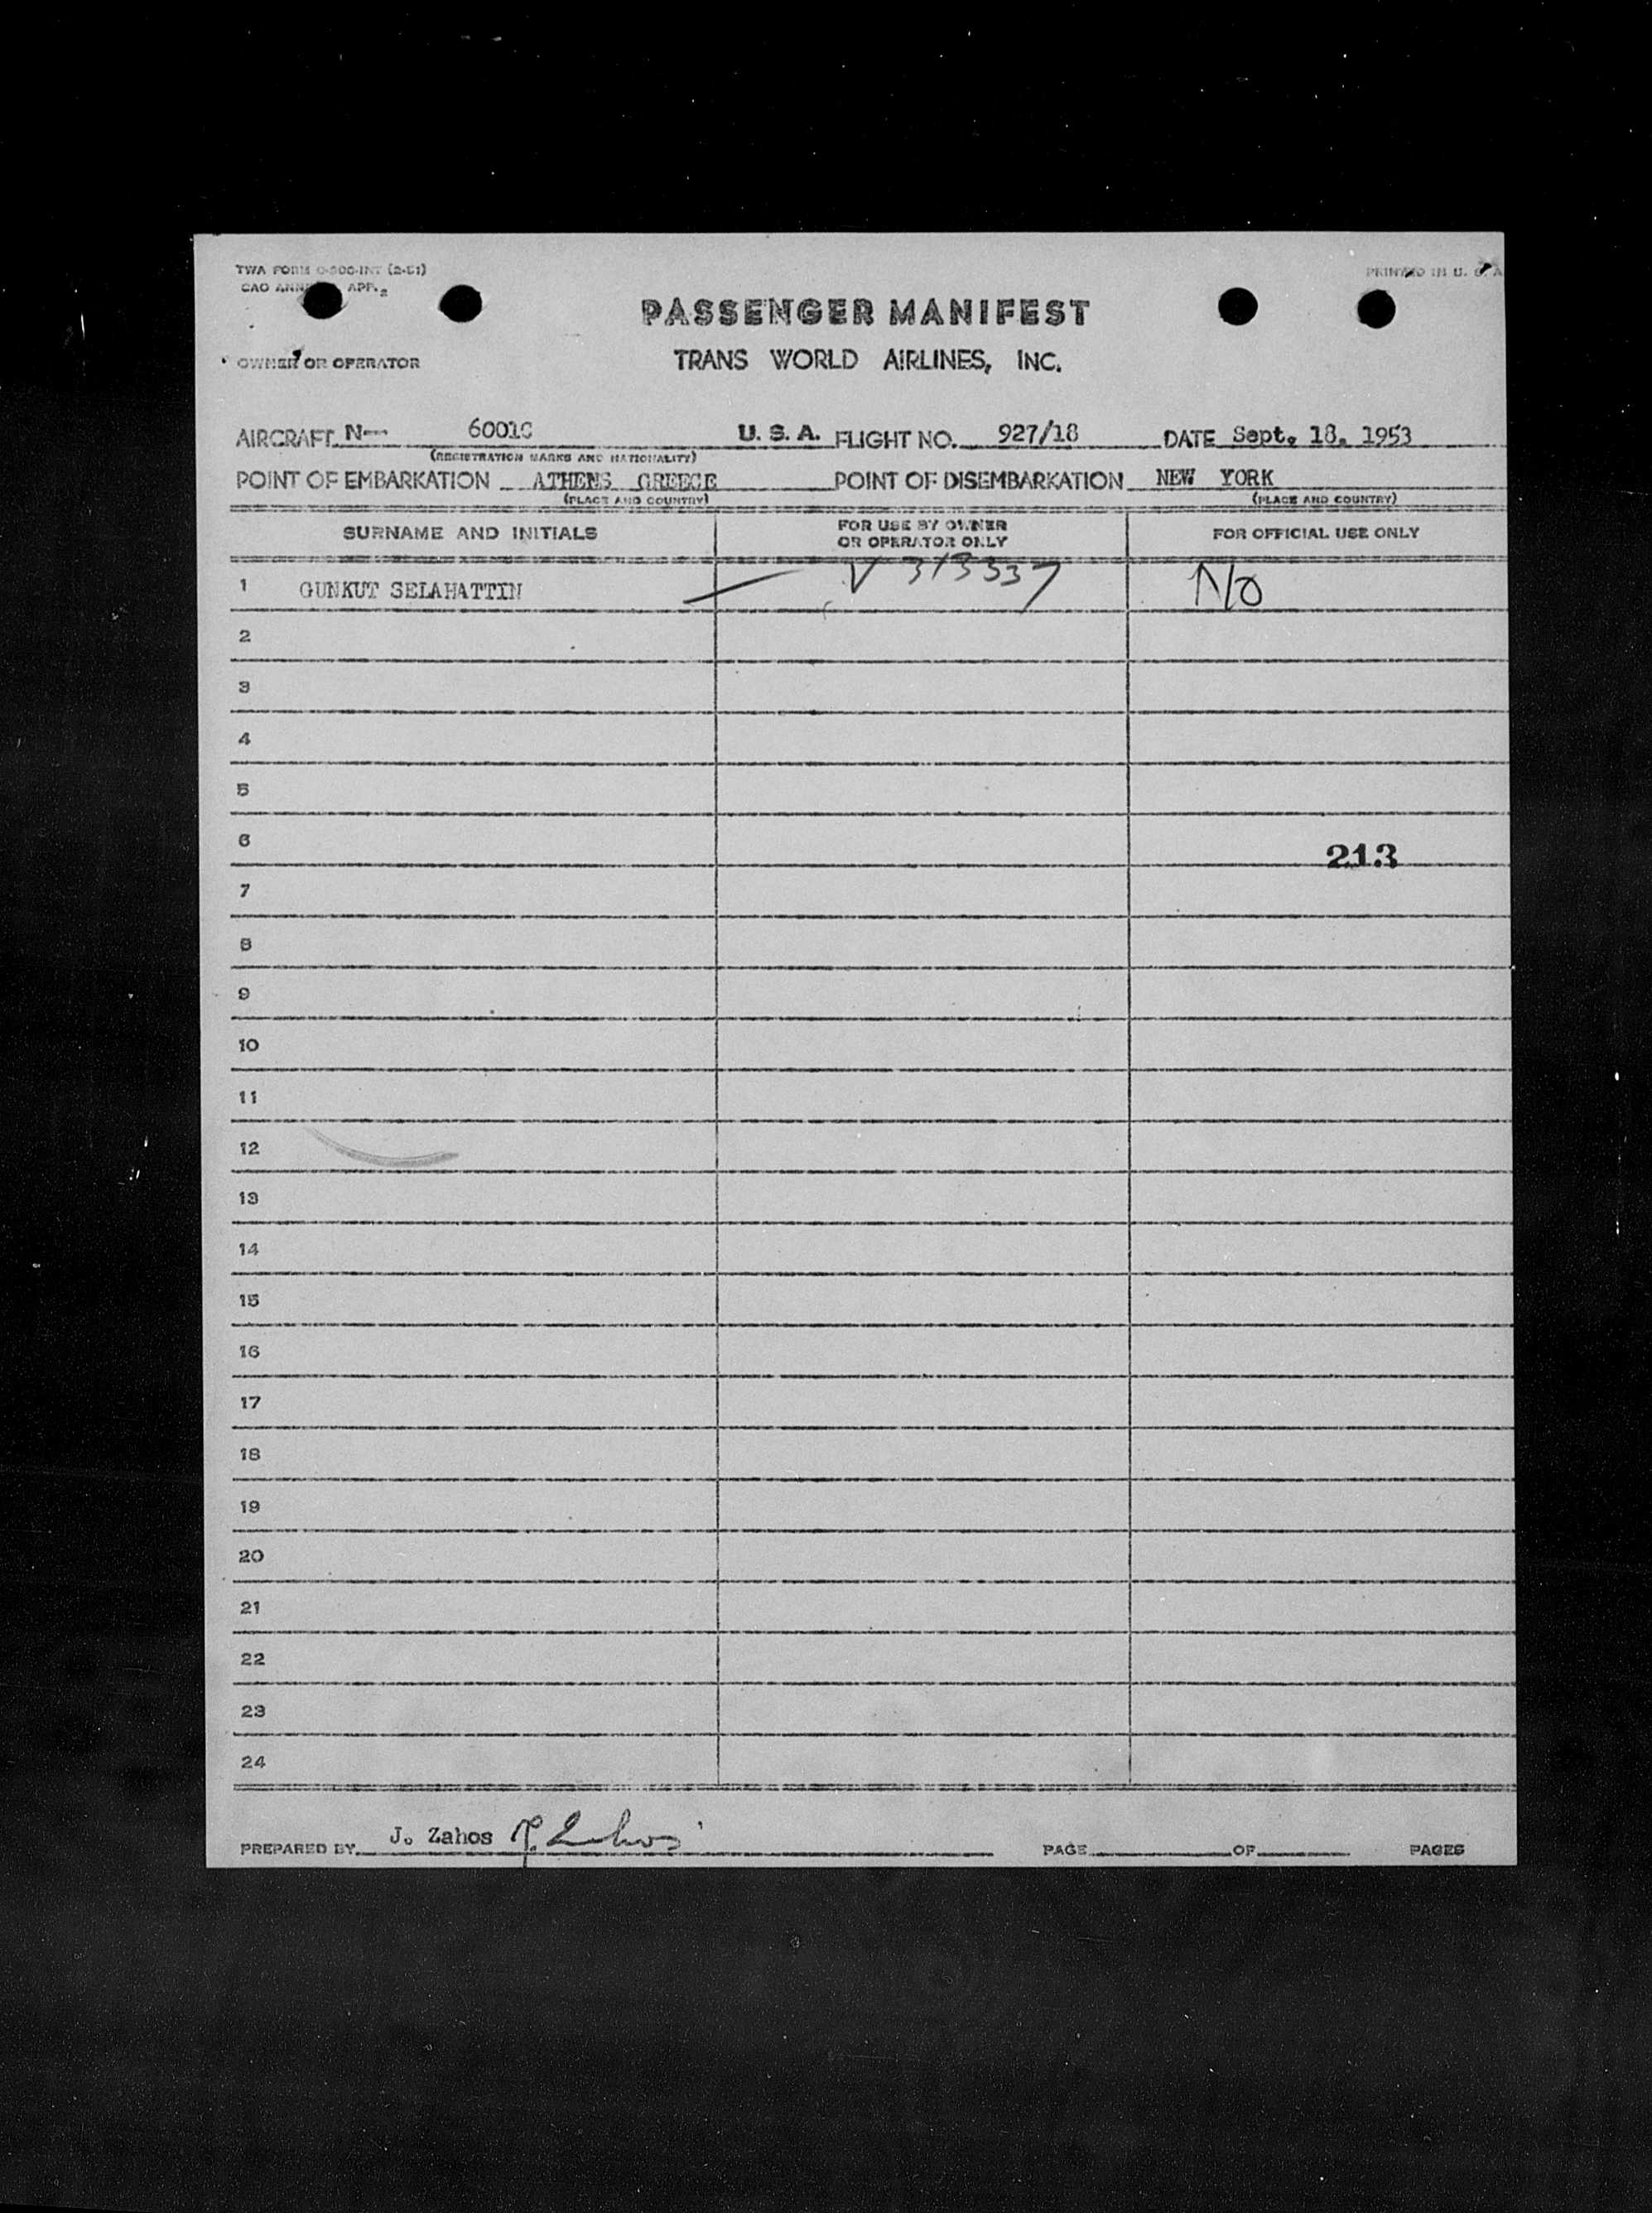 TWA FORM
PRINTED IN U. S. A
CAO APP.
PASSENGER MANIFEST
OWNER OR OPERATOR
TRANS WORLD AIRLINES, INC.
AIRCRAFT N— U. S. A. FLIGHT NO. 927/18 DATE Sept. 18, 1953
(REGISTRATION MARKS AND NATIONALITY)
POINT OF EMBARKATION ATHENS GREECE POINT OF DISEMBARKATION NEW YORK
(PLACE AND COUNTRY) (PLACE AND COUNTRY)
SURNAME AND INITIALS FOR USE BY OWNER OR OPERATOR ONLY FOR OFFICIAL USE ONLY
1 GUNKUT SELAHATTIN V 313537
2
3
4
5
6 213
7
8
9
10
11
12
13
14
15
16
17
18
19
20
21
22
23
24
PREPARED BY J. Zahos J. Zahos PAGE OF PAGES